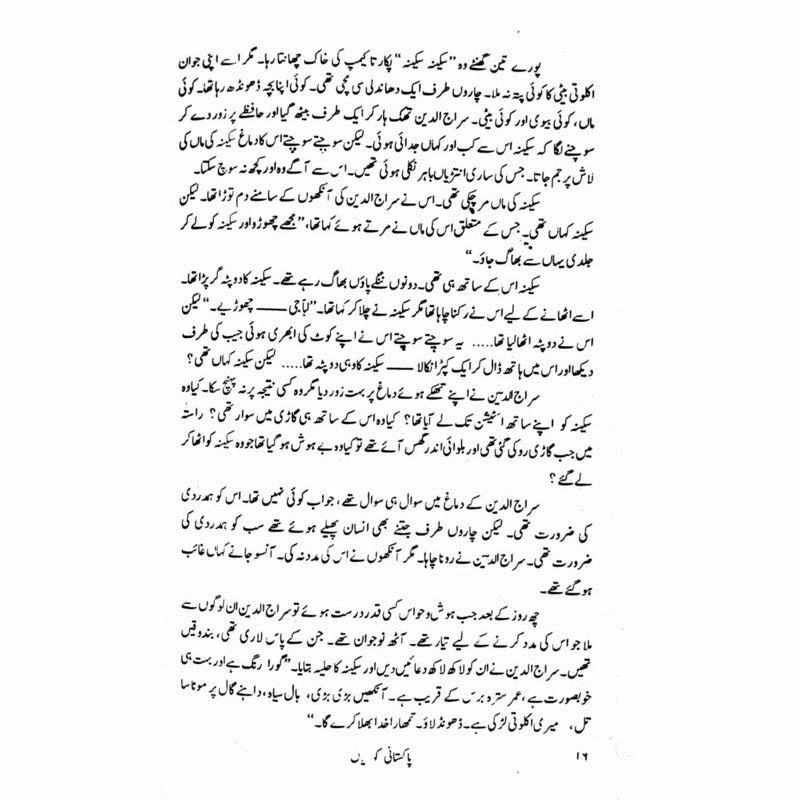 پورے تین گھنٹے وہ ”سکینہ سکینہ“ پکارتا کیمپ کی خاک چھانتا رہا۔ مگر اسے اپنی جوان
اکلوتی بیٹی کا کوئی پتہ نہ ملا۔ چاروں طرف ایک دھاندلی سی مچی تھی۔ کوئی اپنا بچہ ڈھونڈھ رہا تھا۔ کوئی
ماں، کوئی بیوی اور کوئی بیٹی۔ سراج الدین تھک ہار کر ایک طرف بیٹھ گیا اور حافظے پر زور دے کر
سوچنے لگا کہ سکینہ اس سے کب اور کہاں جدا ہوئی۔ لیکن سوچتے سوچتے اس کا دماغ سکینہ کی ماں کی
لاش پر جم جاتا۔ جس کی ساری انتڑیاں باہر نکلی ہوئی تھیں۔ اس سے آگے وہ اور کچھ نہ سوچ سکتا۔
سکینہ کی ماں مر چکی تھی۔ اس نے سراج الدین کی آنکھوں کے سامنے دم توڑا تھا۔ لیکن
سکینہ کہاں تھی۔ جس کے متعلق اس کی ماں نے مرتے ہوئے کہا تھا، ”مجھے چھوڑو اور سکینہ کو لے کر
جلدی یہاں سے بھاگ جاؤ۔“
سکینہ اس کے ساتھ ہی تھی۔ دونوں ننگے پاؤں بھاگ رہے تھے۔ سکینہ کا دوپٹہ گر پڑا تھا۔
اسے اٹھانے کے لیے اس نے رکنا چاہا تھا مگر سکینہ نے چلا کر کہا تھا۔ ”ابّا جی ——— چھوڑیے۔“ لیکن
اس نے دوپٹہ اٹھا لیا تھا..... یہ سوچتے سوچتے اس نے اپنے کوٹ کی ابھری ہوئی جیب کی طرف
دیکھا اور اس میں ہاتھ ڈال کر ایک کپڑا نکالا —— سکینہ کا وہی دوپٹہ تھا..... لیکن سکینہ کہاں تھی؟
سراج الدین نے اپنے تھکے ہوئے دماغ پر بہت زور دیا مگر وہ کسی نتیجہ پر نہ پہنچ سکا۔ کیا وہ
سکینہ کو اپنے ساتھ اسٹیشن تک لے آیا تھا؟ کیا وہ اس کے ساتھ ہی گاڑی میں سوار تھی؟ راستہ
میں جب گاڑی روکی گئی تھی اور بلوائی اندر گھس آئے تھے تو کیا وہ بے ہوش ہو گیا تھا جو وہ سکینہ کو اٹھا کر
لے گئے؟
سراج الدین کے دماغ میں سوال ہی سوال تھے، جواب کوئی نہیں تھا۔ اس کو ہمدردی
کی ضرورت تھی۔ لیکن چاروں طرف جتنے بھی انسان پھیلے ہوئے تھے سب کو ہمدردی کی
ضرورت تھی۔ سراج الدین نے رونا چاہا۔ مگر آنکھوں نے اس کی مدد نہ کی۔ آنسو جانے کہاں غائب
ہو گئے تھے۔
چھ روز کے بعد جب ہوش و حواس کسی قدر درست ہوئے تو سراج الدین ان لوگوں سے
ملا جو اس کی مدد کرنے کے لیے تیار تھے۔ آٹھ نوجوان تھے۔ جن کے پاس لاری تھی، بندوقیں
تھیں۔ سراج الدین نے ان کو لاکھ لاکھ دعائیں دیں اور سکینہ کا حلیہ بتایا۔ ”گورا رنگ ہے اور بہت ہی
خوبصورت ہے، عمر سترہ برس کے قریب ہے۔ آنکھیں بڑی بڑی، بال سیاہ، داہنے گال پر موٹا سا
تل، میری اکلوتی لڑکی ہے۔ ڈھونڈ لاؤ۔ تمھارا خدا بھلا کرے گا۔“
۱۶ پاکستانی